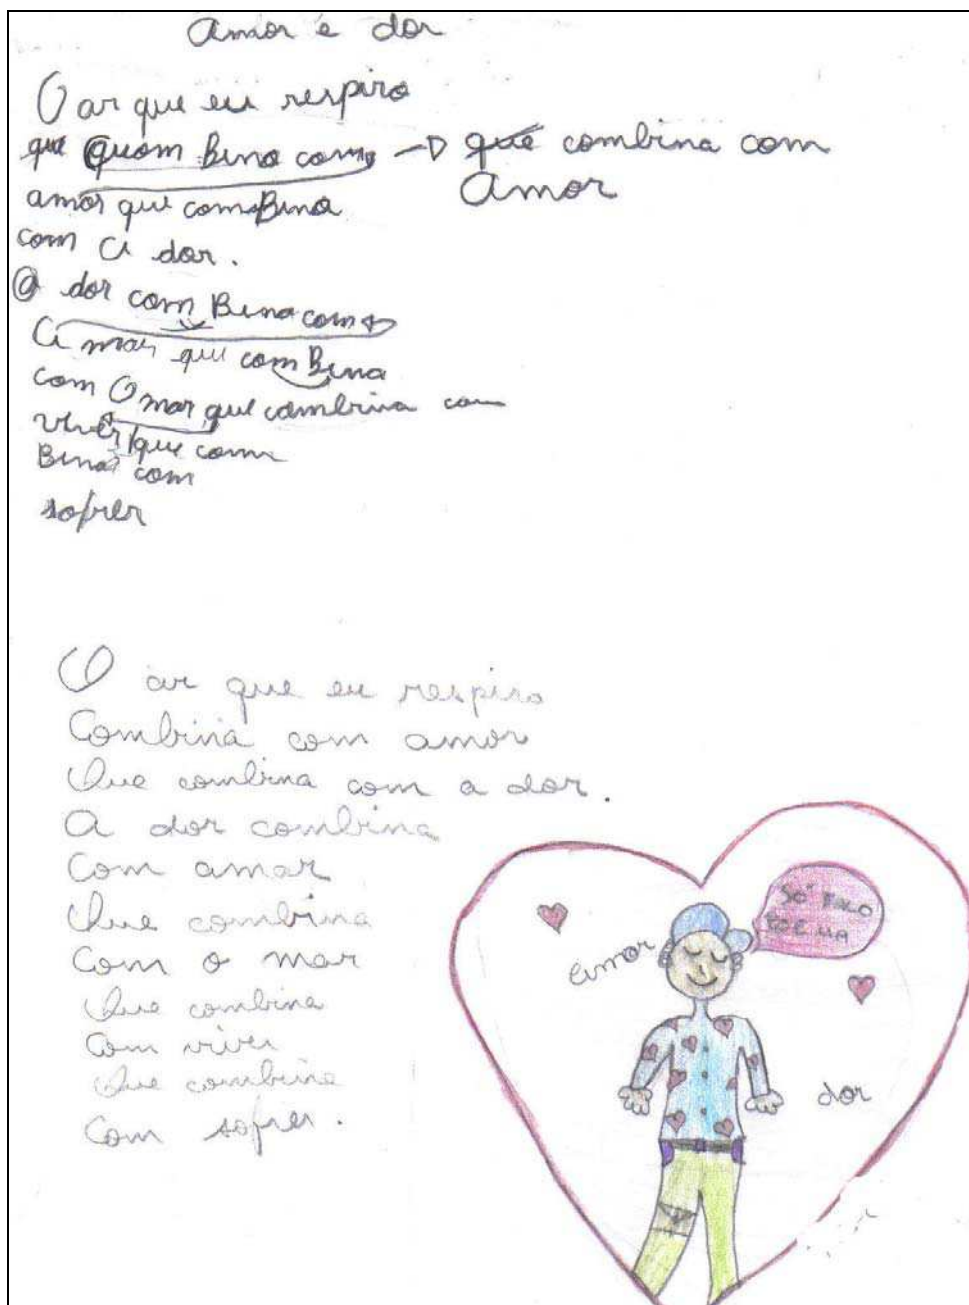 Amor e dor
O ar que eu respiro
que quom Bina com → que combina com
Amor
amor que com Bina
com a dor.
A dor com Bina com
A mar que com Bina
com O mar que combina com
viver que com
Bina com
sofrer
O ar que eu respiro
Combina com amor
Que combina com a dor.
A dor combina
Com amar
Que combina
Com o mar
Que combina
Com viver
Que combina
Com sofrer.
SÓ FALO
POEMA
amor
dor